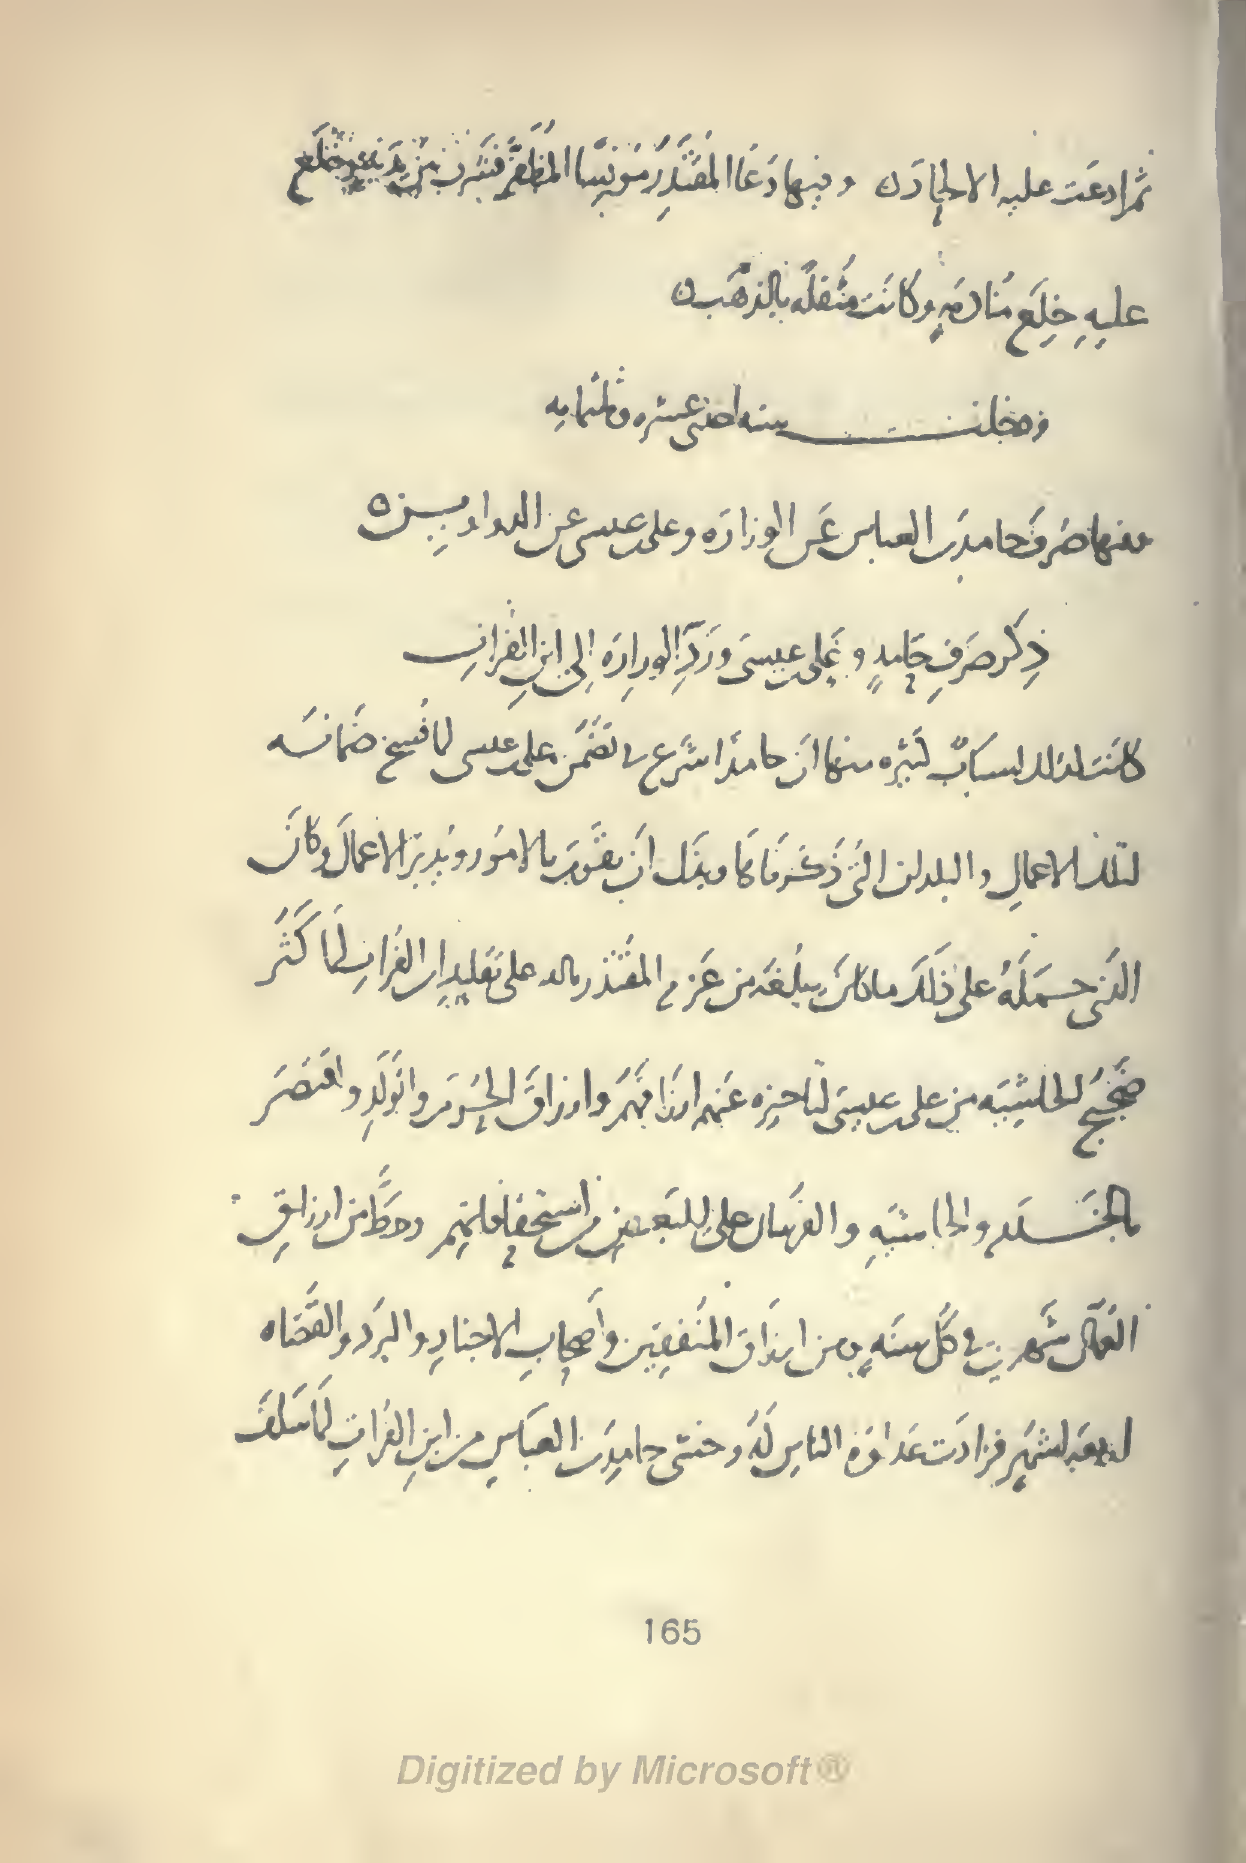 ثم ادعت عليه الالحاد ن وفيها دَعَا المُقتَدِرُ مونِسًا المُظفَّر فشرب بين يديه وخلع
عليهِ خِلَع مُنادمَهٍ وكانَت مثقله بالذهَب ن
ودخلت سنه احدى عشره وثلثمايه
ففيها صُرفَ حامد بن العباس عَن الوزارَه وعلى بن عيسى عن الدواوين ه
ذِكر صَرفِ حَامِدٍ وعَلى بن عيسَى وَرَدِّ الوِزارَه إلى ابنِ الفراتِ
كانَت لذلك اسبابٌ كثيره منها انَ حامدًا شَرع فى تَضَمُّن على بن عيسى لما فُسِخ ضَمانُه
لتلك الاعمالِ والبلدان التى ذَكَرنَاهَا وبذل ان يقُومَ بالامُور ويُدبِّرَ الاعمالَ وكانَ
الذى حمَلَهُ على ذلكَ ما كانَ يبلُغُه من عَزم المقُتَدر بالله على تَقليد ابن الفُراتِ لمَا كَثُر
ضَجيجُ الحاشِيَه من على بن عيسى لتاخيره عَنهم ارزَاقَهُم وارزاقَ الحُرَمِ والوَلَدِ واقتَصَرَ
بالخَدَم والحاشيَهِ والفرسان على البَعضِ من استحقاقاتِهم وحَطَّ من ارزاقِ
العُمَّال شَهرين فى كُل سنَهٍ ومن ارزاق المُنفقِين واَصحابِ الاخبارِ والبرُد والقُضاه
اربعَه اشهُرٍ فزادَت عَداوَهُ الناسِ لَهُ وخشى حامِد بن العبَاسِ من ابنِ الفُراتِ لمَا سَلَفَ
165
Digitized by Microsoft®